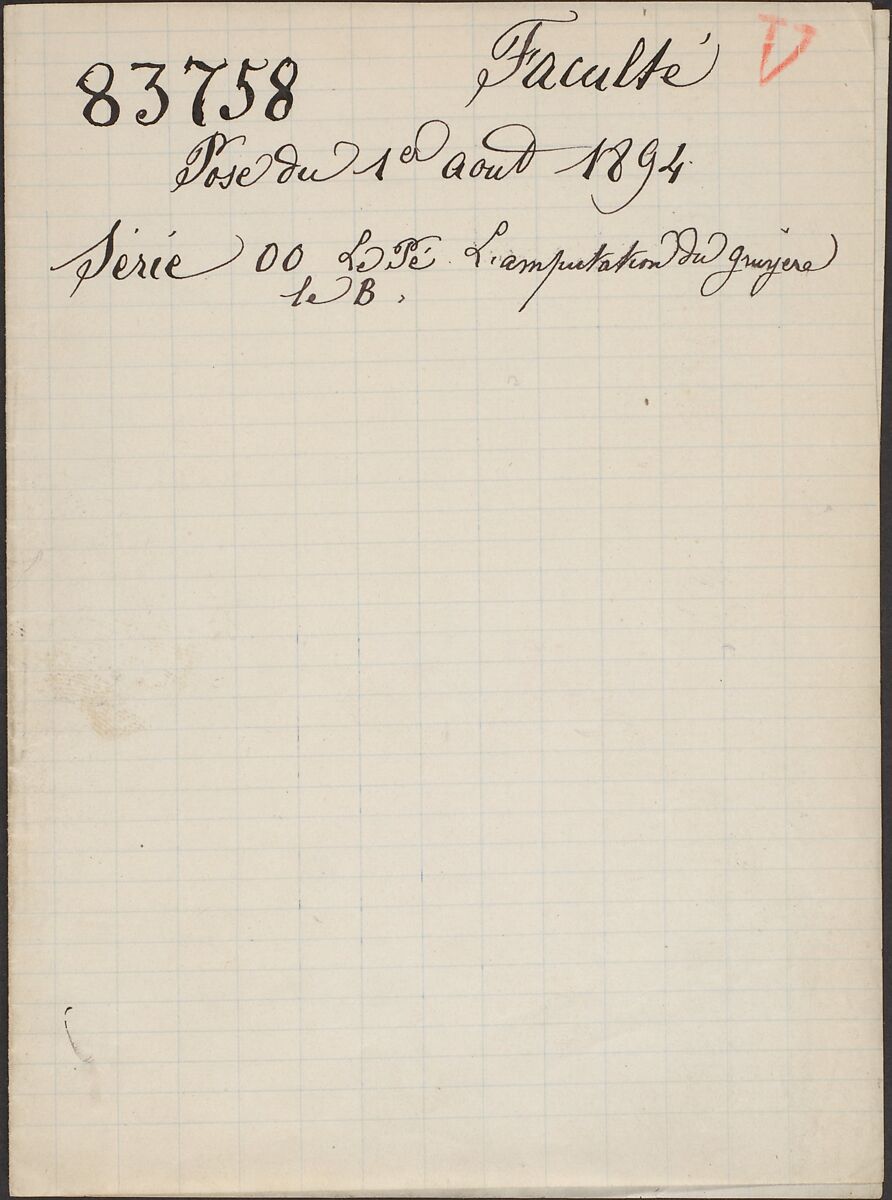 83758 Faculté V
Pose du 1er aout 1894.
Série 00 Le Pé. L'amputation du gruyère
le B.